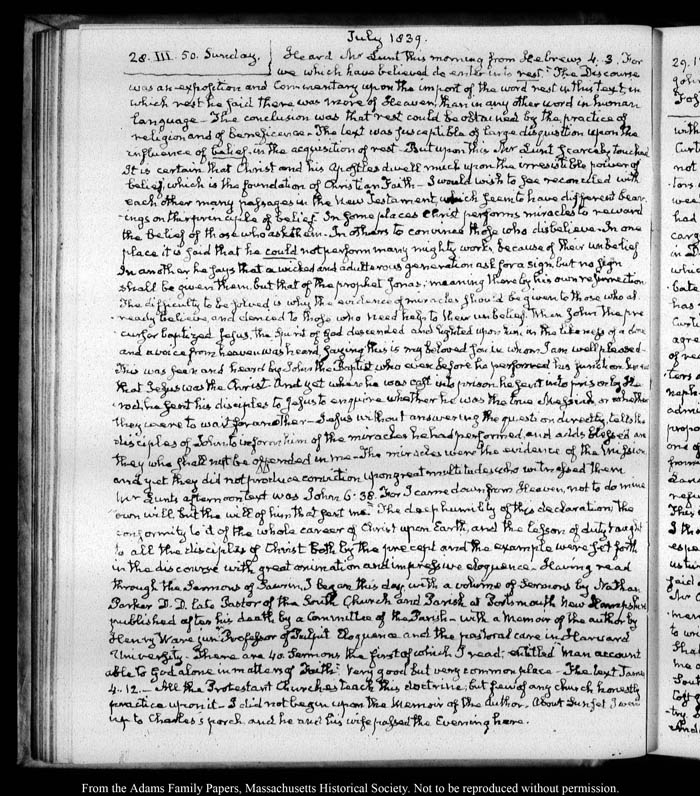 July 1839.
28. III. 50. Sunday. Heard Mr Lunt this morning from Hebrews 4. 3. For
we which have believed do enter into rest. The Discourse
was an exposition and Commentary upon the import of the word rest in this text, in
which rest he said there was more of Heaven, than in any other word in human
language - The conclusion was that rest could be obtained by the practice of
religion and of beneficence - The text was susceptible of large disquisition upon the
influence of belief, in the acquisition of rest - But upon this Mr Lunt scarcely touched
It is certain that Christ and his Apostles dwell much upon the irresistible power of
belief, which is the foundation of Christian Faith - I would wish to see reconciled with
each other many passages in the New Testament, which seem to have different bear-
ings on this principle of belief. In some places Christ performs miracles to reward
the belief of those who ask them - In others to convince those who disbelieve - In one
place it is said that he could not perform many mighty works because of their unbelief
In another he says that a wicked and adulterous generation ask for a sign, but no sign
shall be given them, but that of the prophet Jonas; meaning thereby his own resurrection
The difficulty to be solved is why the evidence of miracles should be given to those who al-
ready believe, and denied to those who need help to their unbelief. When John the pre-
cursor baptized Jesus, the Spirit of God descended and lighted upon him, in the likeness of a dove
and a voice from heaven was heard, saying this is my beloved Son in whom I am well pleased -
This was seen and heard by John the Baptist who ever before he performed his function knew
that Jesus was the Christ. And yet when he was cast into prison he sent into prison by He-
rod, he sent his disciples to Jesus to enquire whether he was the true Messiah, or whether
they were to wait for another - Jesus without answering the question directly, tells the
disciples of John to inform him of the miracles he had performed, and adds blessed are
they who shall not be offended in me - The miracles were the evidence of the mission
and yet they did not produce conviction upon great multitudes who witnessed them
Mr Lunt's afternoon text was John 6. 38. For I came down from Heaven, not to do mine
own will, but the will of him that sent me. The deep humility of this declaration, the
conformity to it of the whole career of Christ upon Earth, and the lesson of duty taught
to all the disciples of Christ both by the precept and the example were set forth
in the discourse with great animation and impressive eloquence - Having read
through the Sermons of Saurin, I began this day with a volume of Sermons by Nathan
Parker D. D. late Pastor of the South Church and Parish at Portsmouth New Hampshire
published after his death by a Committee of the Parish - with a Memoir of the author by
Henry Ware jun. Professor of Pulpit Eloquence and the pastoral care in Harvard
University. There are 40 Sermons the first of which I read; entitled Man account
able to God alone in matters of Faith. Very good but very common place - The text James
4. 12. - All the Protestant Churches teach this doctrine, but few if any church honestly
practice upon it - I did not begin upon the Memoir of the Author. About Sunset I went
up to Charles's porch and he and his wife passed the Evening here.
From the Adams Family Papers, Massachusetts Historical Society. Not to be reproduced without permission.